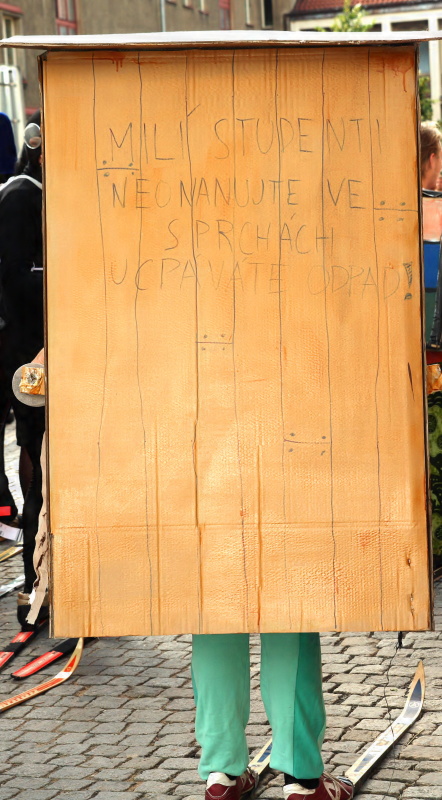 MILÍ STUDENTI
NEONANUJTE VE
SPRCHÁCH
UCPÁVÁTE ODPAD!